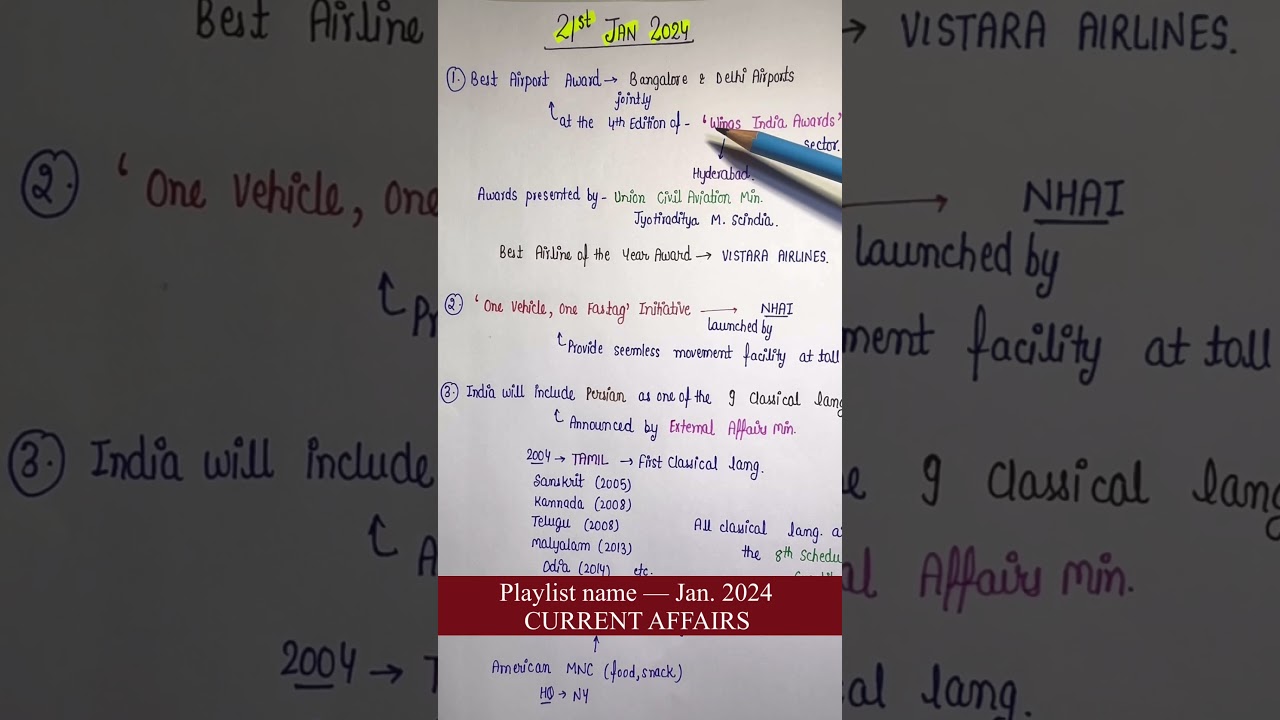 21st JAN 2024
1. Best Airport Award → Bangalore & Delhi Airports
jointly
at the 4th Edition of - 'Wings India Awards'
sector.
Hyderabad.
Awards presented by - Union Civil Aviation Min.
Jyotiraditya M. Scindia.
Best Airline of the Year Award → VISTARA AIRLINES.
2. 'One Vehicle, one Fastag' Initiative → NHAI
launched by
Provide seemless movement facility at toll
3. India will include Persian as one of the 9 Classical lang
Announced by External Affairs Min.
2004 → TAMIL → First Classical lang.
Sanskrit (2005)
Kannada (2008)
Telugu (2008)
Malyalam (2013)
Odia (2014) etc.
All classical lang. a
the 8th Schedu
Playlist name — Jan. 2024
CURRENT AFFAIRS
American MNC (food, snack)
HQ → NY
Best Airline
→ VISTARA AIRLINES.
2. 'One Vehicle, one
→ NHAI
launched by
Pr
ment facility at toll
3. India will include
e 9 Classical lang
A
al Affairs Min.
2004 → T
al lang.